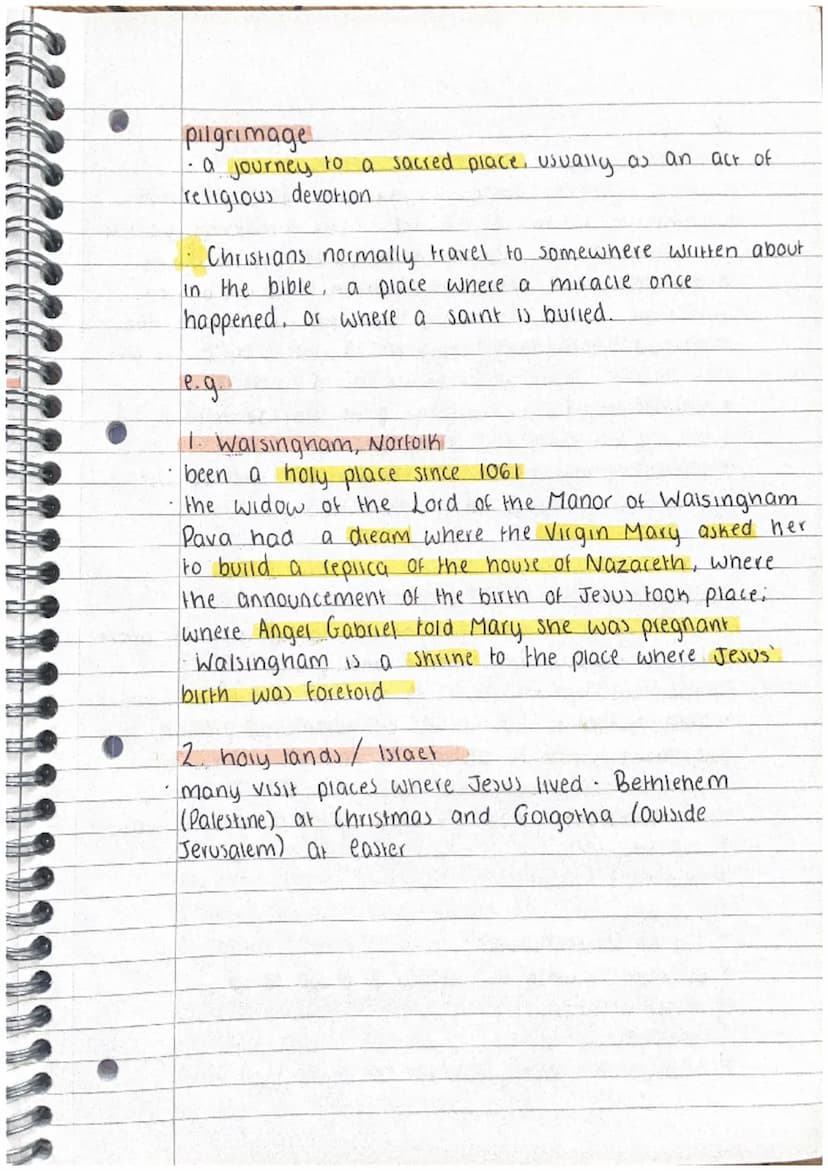 pilgrimage
· a journey to a sacred place, usually as an act of
religious devotion
· Christians normally travel to somewhere written about
in the bible, a place where a miracle once
happened, or where a saint is buried.
e.g.
1. Walsingham, Norfolk
· been a holy place since 1061
· the widow of the Lord of the Manor of Walsingham
Pava had a dream where the Virgin Mary asked her
to build a replica of the house of Nazareth, where
the announcement of the birth of Jesus took place;
where Angel Gabriel told Mary she was pregnant
· Walsingham is a shrine to the place where Jesus'
birth was foretold
2. holy lands / Israel
· many visit places where Jesus lived · Bethlehem
(Palestine) at Christmas and Golgotha (outside
Jerusalem) at easter